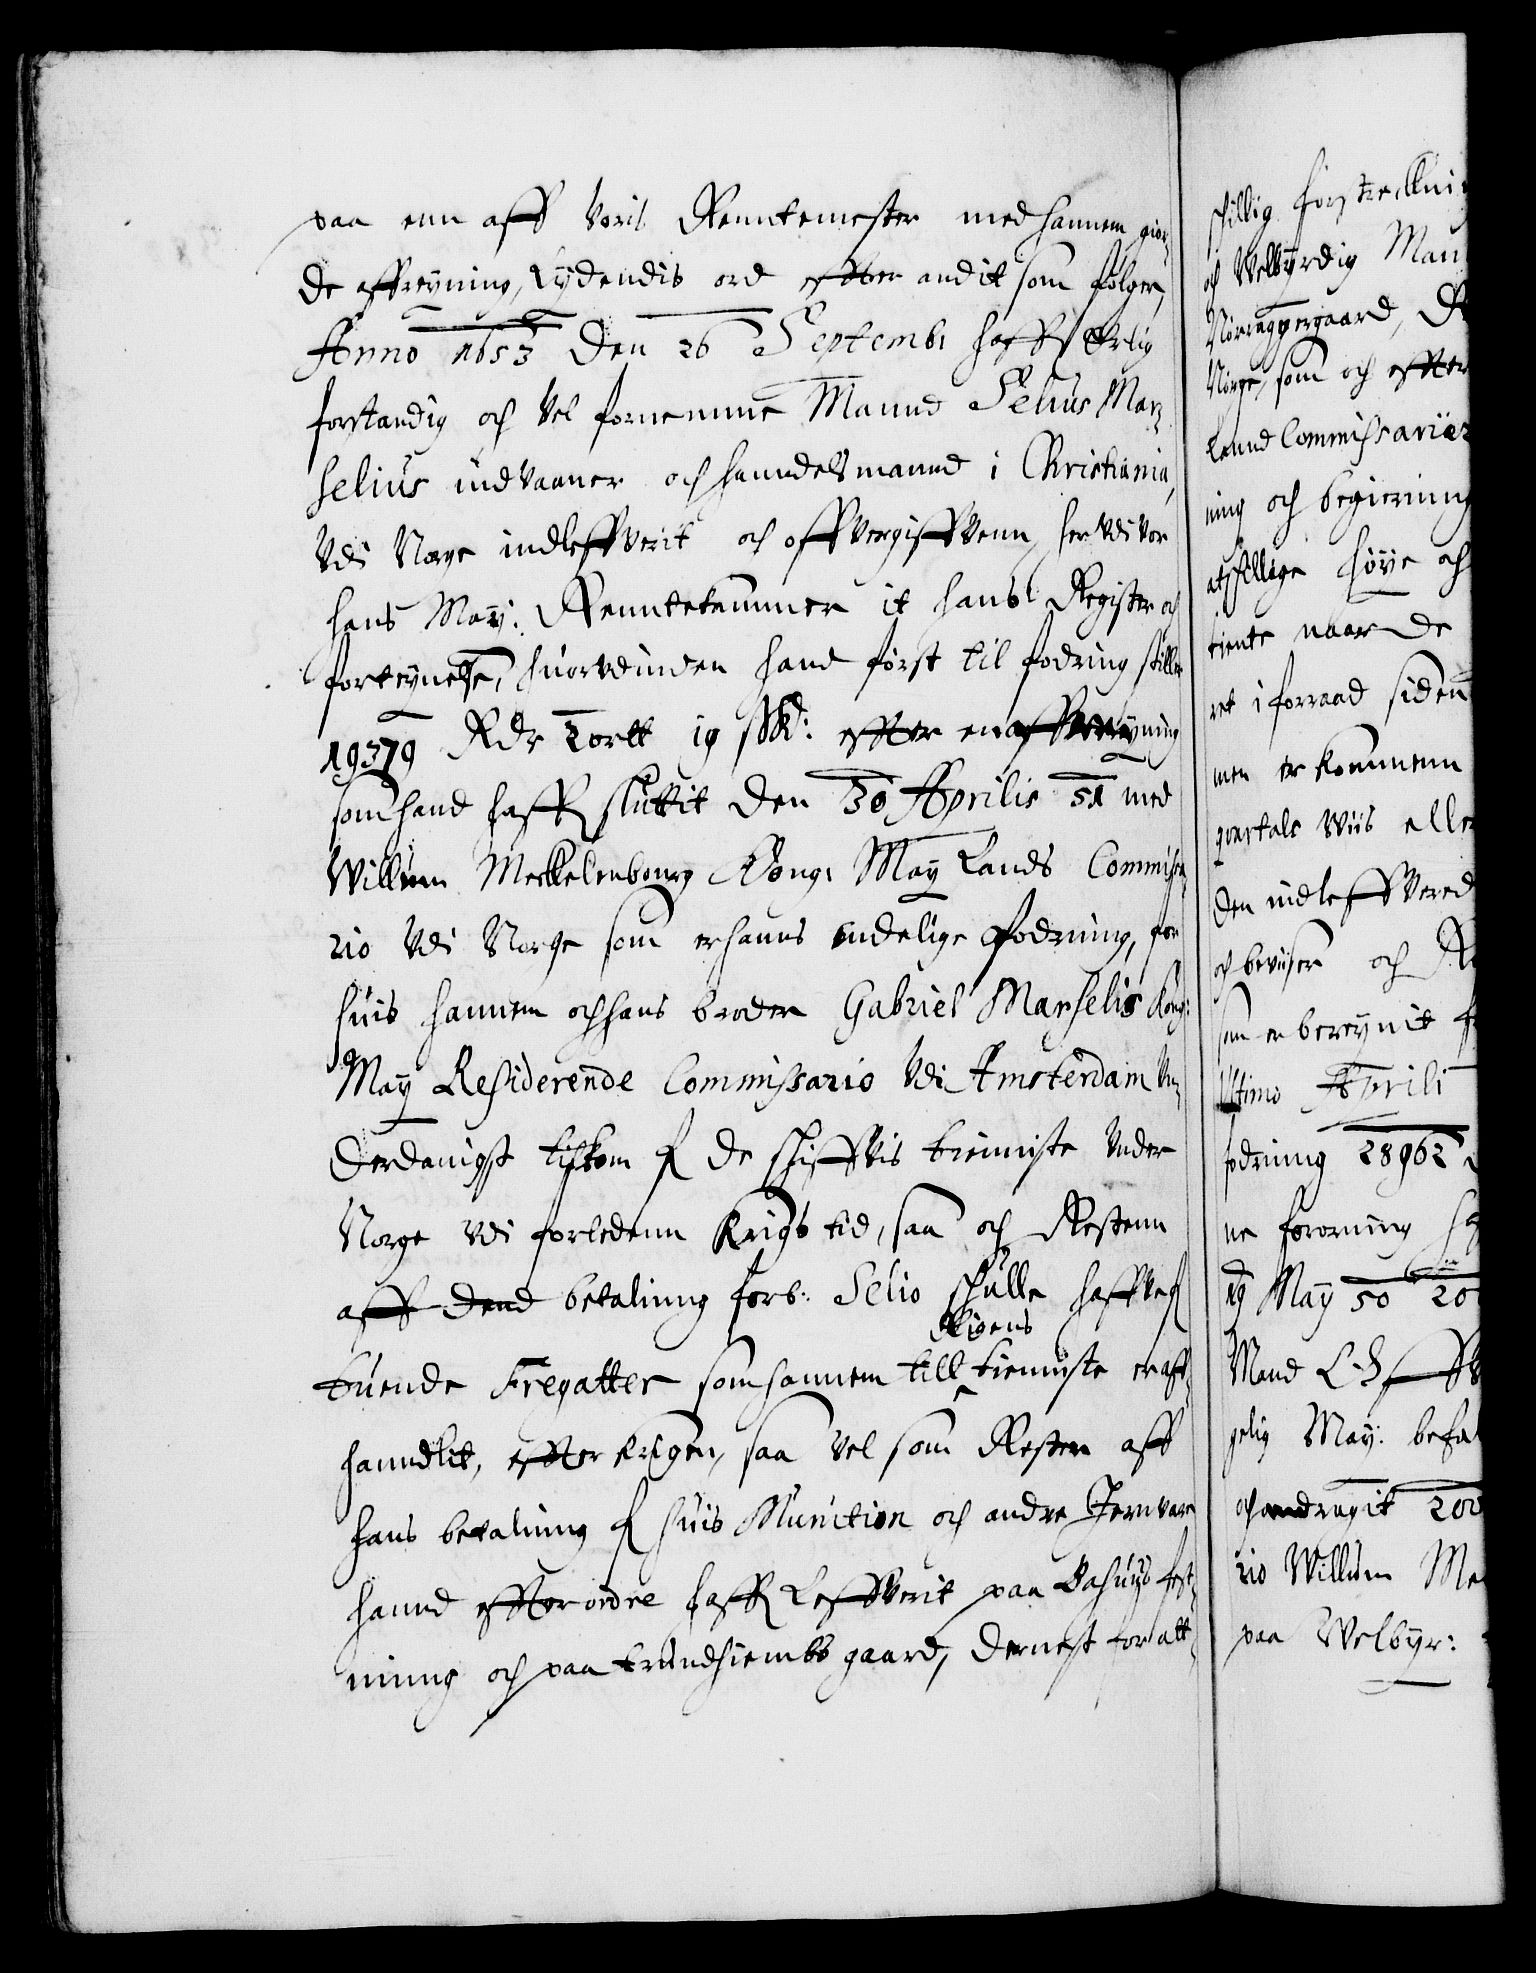 paa enn aff voris Renntemester med hannem gior¬
de affreyning, Lydendis ord effter andit som følger,
Anno 1653 Den 26 Septembr haffr Erlig
forstandig och vel fornemme Mannd Selius Mar¬
selius indvaaner och hanndelsmannd i Christiania,
Vdi Norge indleffverit och offvergiffvenn, her vdi vor
hans May: Renntekammer it hans Register och
forteynelse, huorudinden hand først til fodring stiller
19379 Rdr 2 ortt 19 sk: effter en affreigning
som hand haffr sluttit den 30 Aprilis 51 med
Willum Mecklenbourg Kong: May Lands Commissa
rio vdi Norge som er hanns endelige fodring, for
huis hannem och hans broder Gabriel Marselis Kong:
May Residerende Commissario Vdi Amsterdam Vn¬
derdanigst tilkom for de schiffvis tienniste under
Norge vdi forledenn Krigs tid, saa och Restenn
aff dend betaling forb: Selio schulle haffve for
tuende Fregatter som hannem till Rigens tienniste er aff¬
hanndlit, effter krigen, saa vel som Resten aff
hans betalning for huis Munition och andre Jernvare
hannd effter ordre haffr Leffverit paa Bahuus fest¬
ning och paa trundhiembs gaard, dernest for att
schillig forstrecknin
och Welbyrdig Man
Nørragergaard, R
Norge, som och effter
Lannd Commissarier
ning och begiering
atschillige høye och
tiente naar de
ret i forraad siden
men er kommenn
quartals wiis eller
den indleffvered
och beviiser och R
som er bereynit f
Ultimo Aprili
fodring 28962
ne forordning h
19 May 50 20
Mand
gelig May: befal
och andragit 200
rio Willum Me
paa Welbyr: